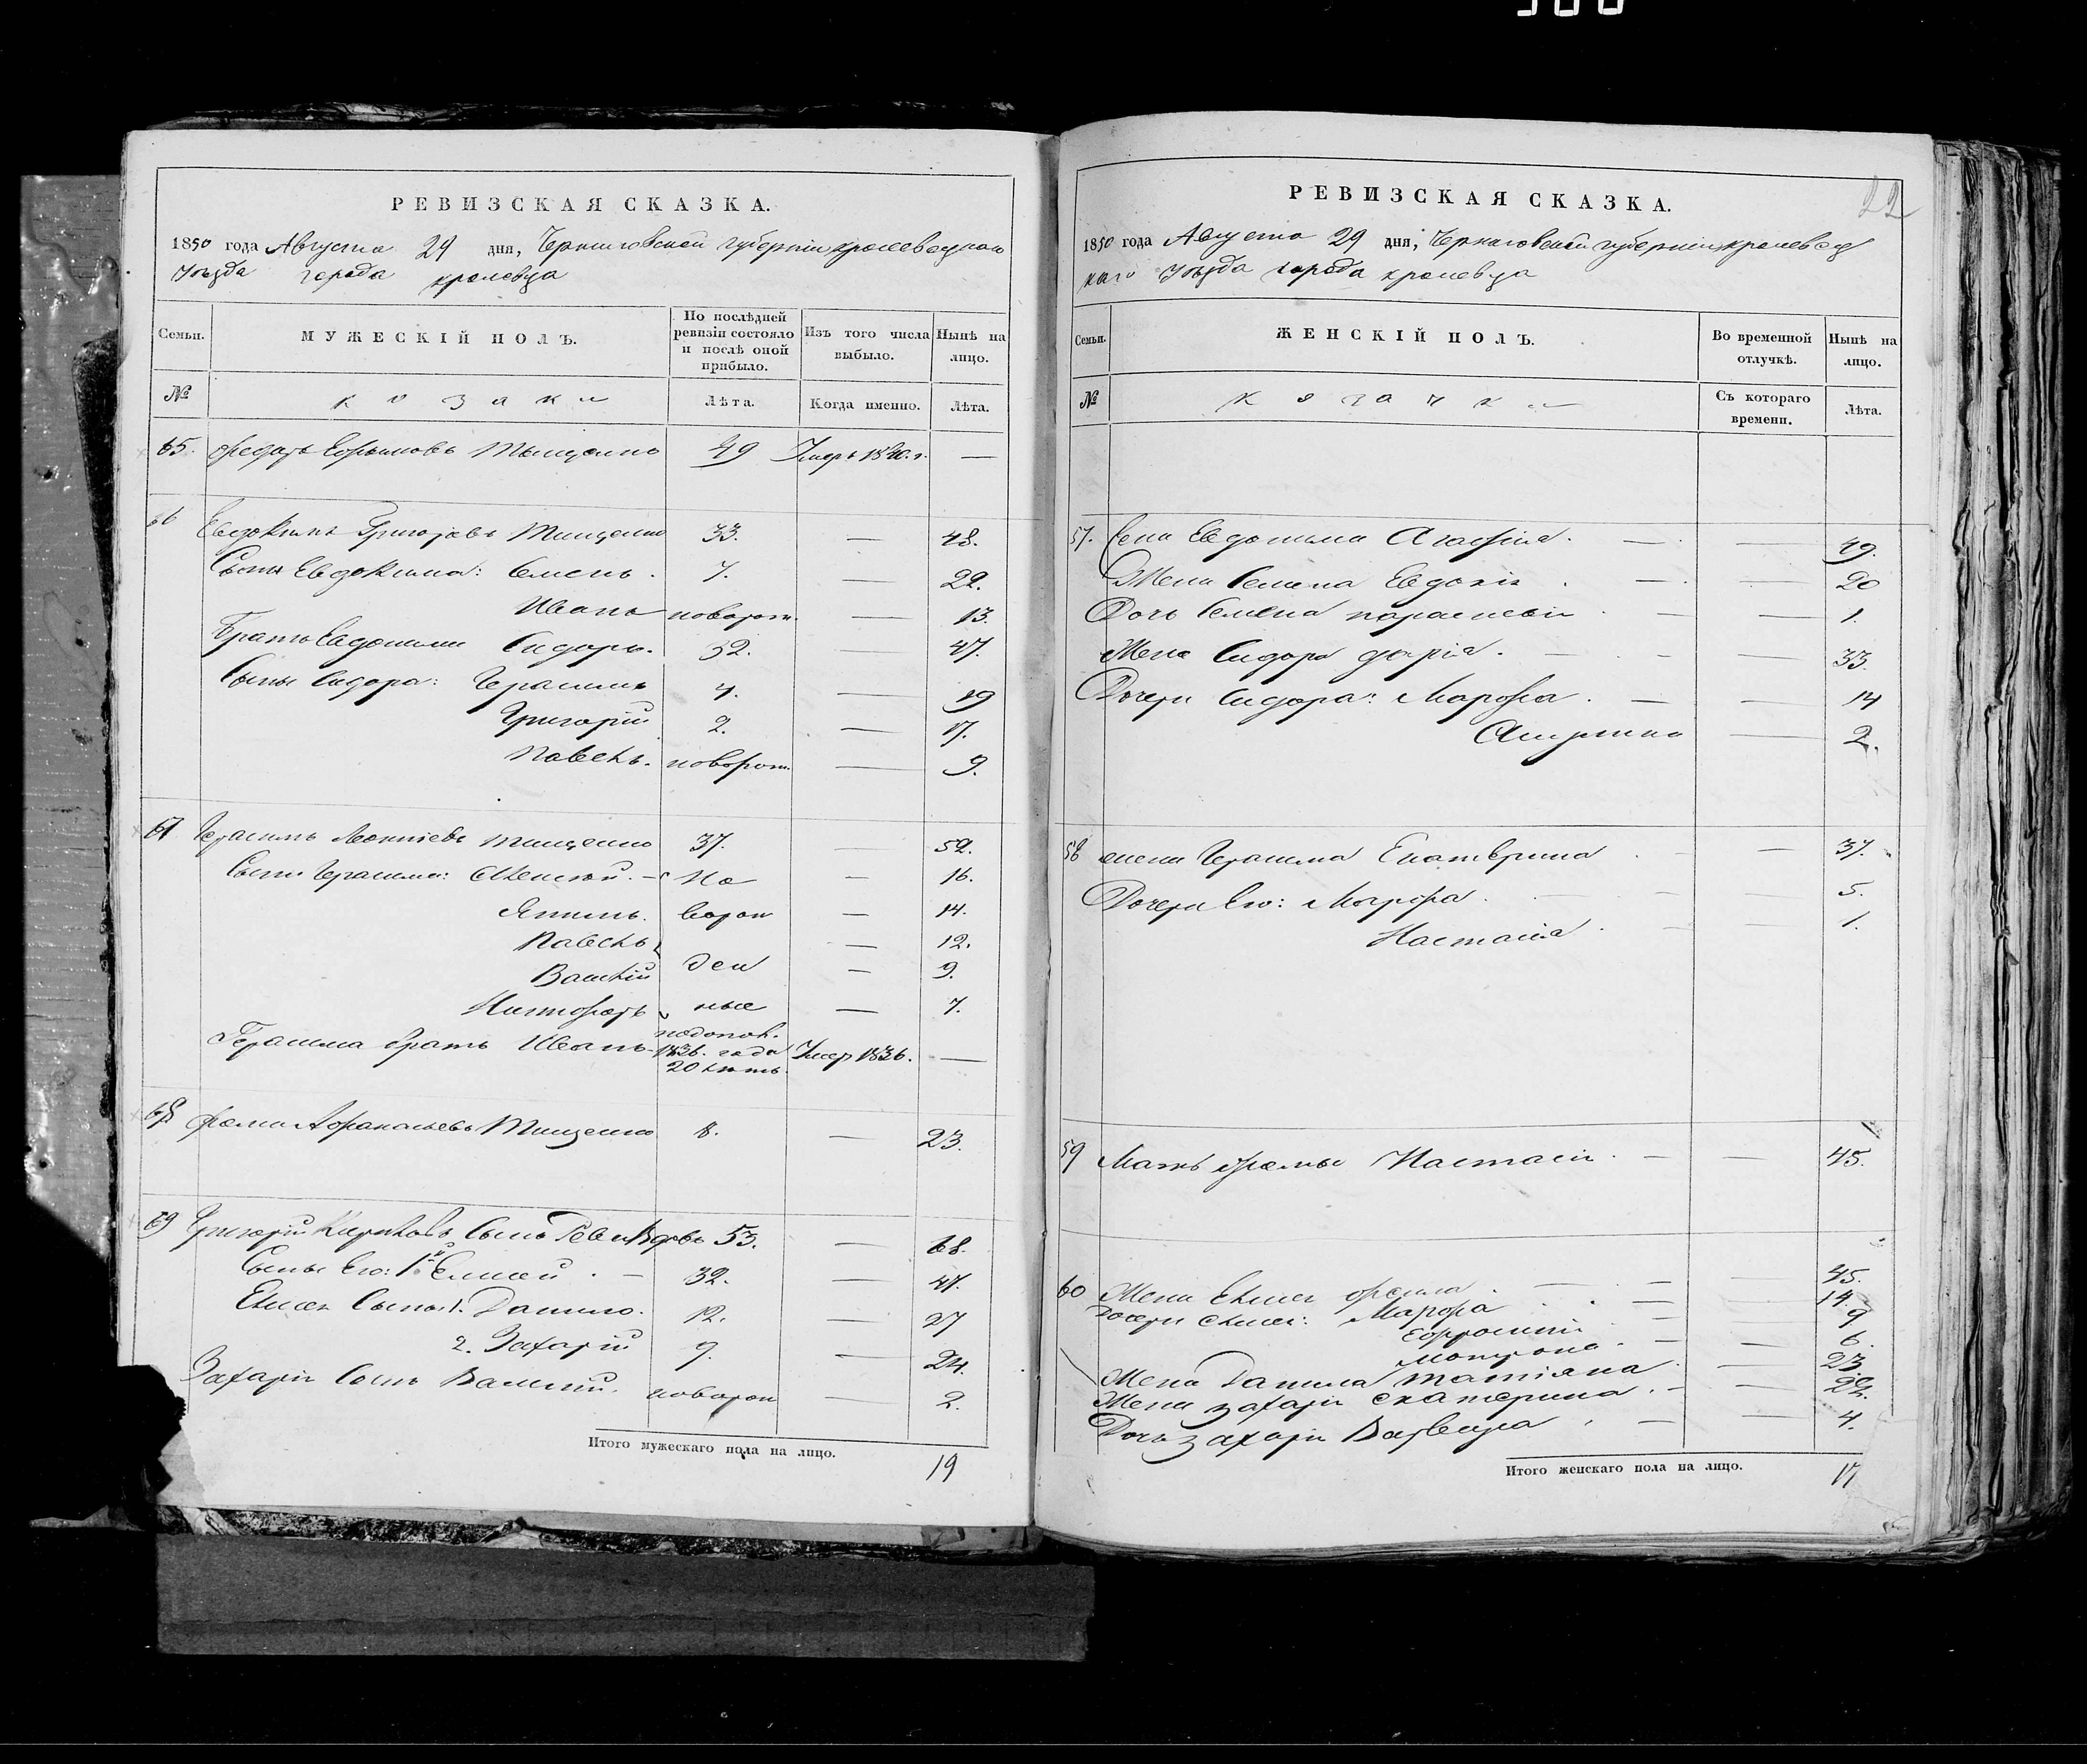 РЕВИЗСКАЯ СКАЗКА.
1850 года Августа 29 дня, Черниговской губерніи кролевецкаго
уѣзда города кролевца
Семьи. МУЖЕСКІЙ ПОЛЪ. По послѣдней ревизіи состояло и послѣ оной прибыло. Изъ того числа выбыло. Нынѣ на лицо.
№ козаки Лѣта. Когда именно. Лѣта.
65. Федоръ Тищенко 49 Умеръ 1840. г. —
66 Евдокимъ Григорьевъ Тищенко 33. — 48.
Сыны Евдокима: Семенъ. 7. — 22.
Иванъ новорож. — 13.
Братъ Евдокима Сидоръ. 32. — 47.
Сыны Сидора: Герасимъ 4. — 19
Григорій 2. — 17.
Павелъ. новорож. — 9.
67 Герасимъ Леонтіевъ Тищенко 37. — 52.
Сыны Герасима: Алексѣй. — но — 16.
Якимъ. ворож — 14.
Павелъ — 12.
Василій ден — 9.
Никифоръ ные — 7.
Герасима братъ Иванъ 1836. года 20 лѣтъ. Умер 1836. —
68 Фома Афанасьевъ Тищенко 8. — 23.
69 Григорій Кириловъ Сынъ 53. — 68.
Сыны Его: 1й Елисей. — 32. — 47.
Елисея Сыны: 1. Данило. 12. — 27
2. Захарій 9. — 24.
Захарія Сынъ Василий. новорож — 2.
Итого мужескаго пола на лицо. 19
22
РЕВИЗСКАЯ СКАЗКА.
1850 года Августа 29 дня, Черниговской губерніи кролевец
каго уѣзда города кролевца
Семьи. ЖЕНСКІЙ ПОЛЪ. Во временной отлучкѣ. Нынѣ на лицо.
№ козачки Съ котораго времени. Лѣта.
57. Жена Евдокима Агафія. — — 49.
Жена Семена Евдокія. — — 20
Дочь Семена параскевія. — — 1.
Жена Сидора дарія. — — 33.
Дочери Сидора: Марфа. — — 14
— 2.
58 жена Герасима Екатерина — 37.
Дочери Его: Марфа. — 5.
Настасія. — 1.
59 Мать Фомы Настасія. — — 45.
60 Жена Елисея — — 45.
Дочери Елисея: Марфа — 14.
Ефросинія — 9
Мотрона. — 6.
Жена Данила татіяна — 23.
Жена захарія екатерина. — — 22.
Дочь захарія Варвара — — 4.
Итого женскаго пола на лицо. 17